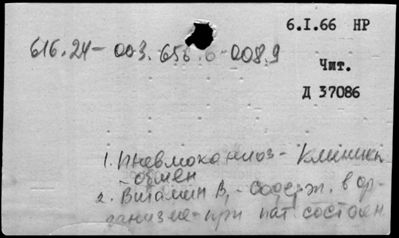 6.I.66 НР
616.24-003.656.6-008.9
Чит.
Д 37086
1. Пневмокониоз - клиника
- обмен
2. Витамин В1 - содерж. в ор-
ганизме - при пат. состоян